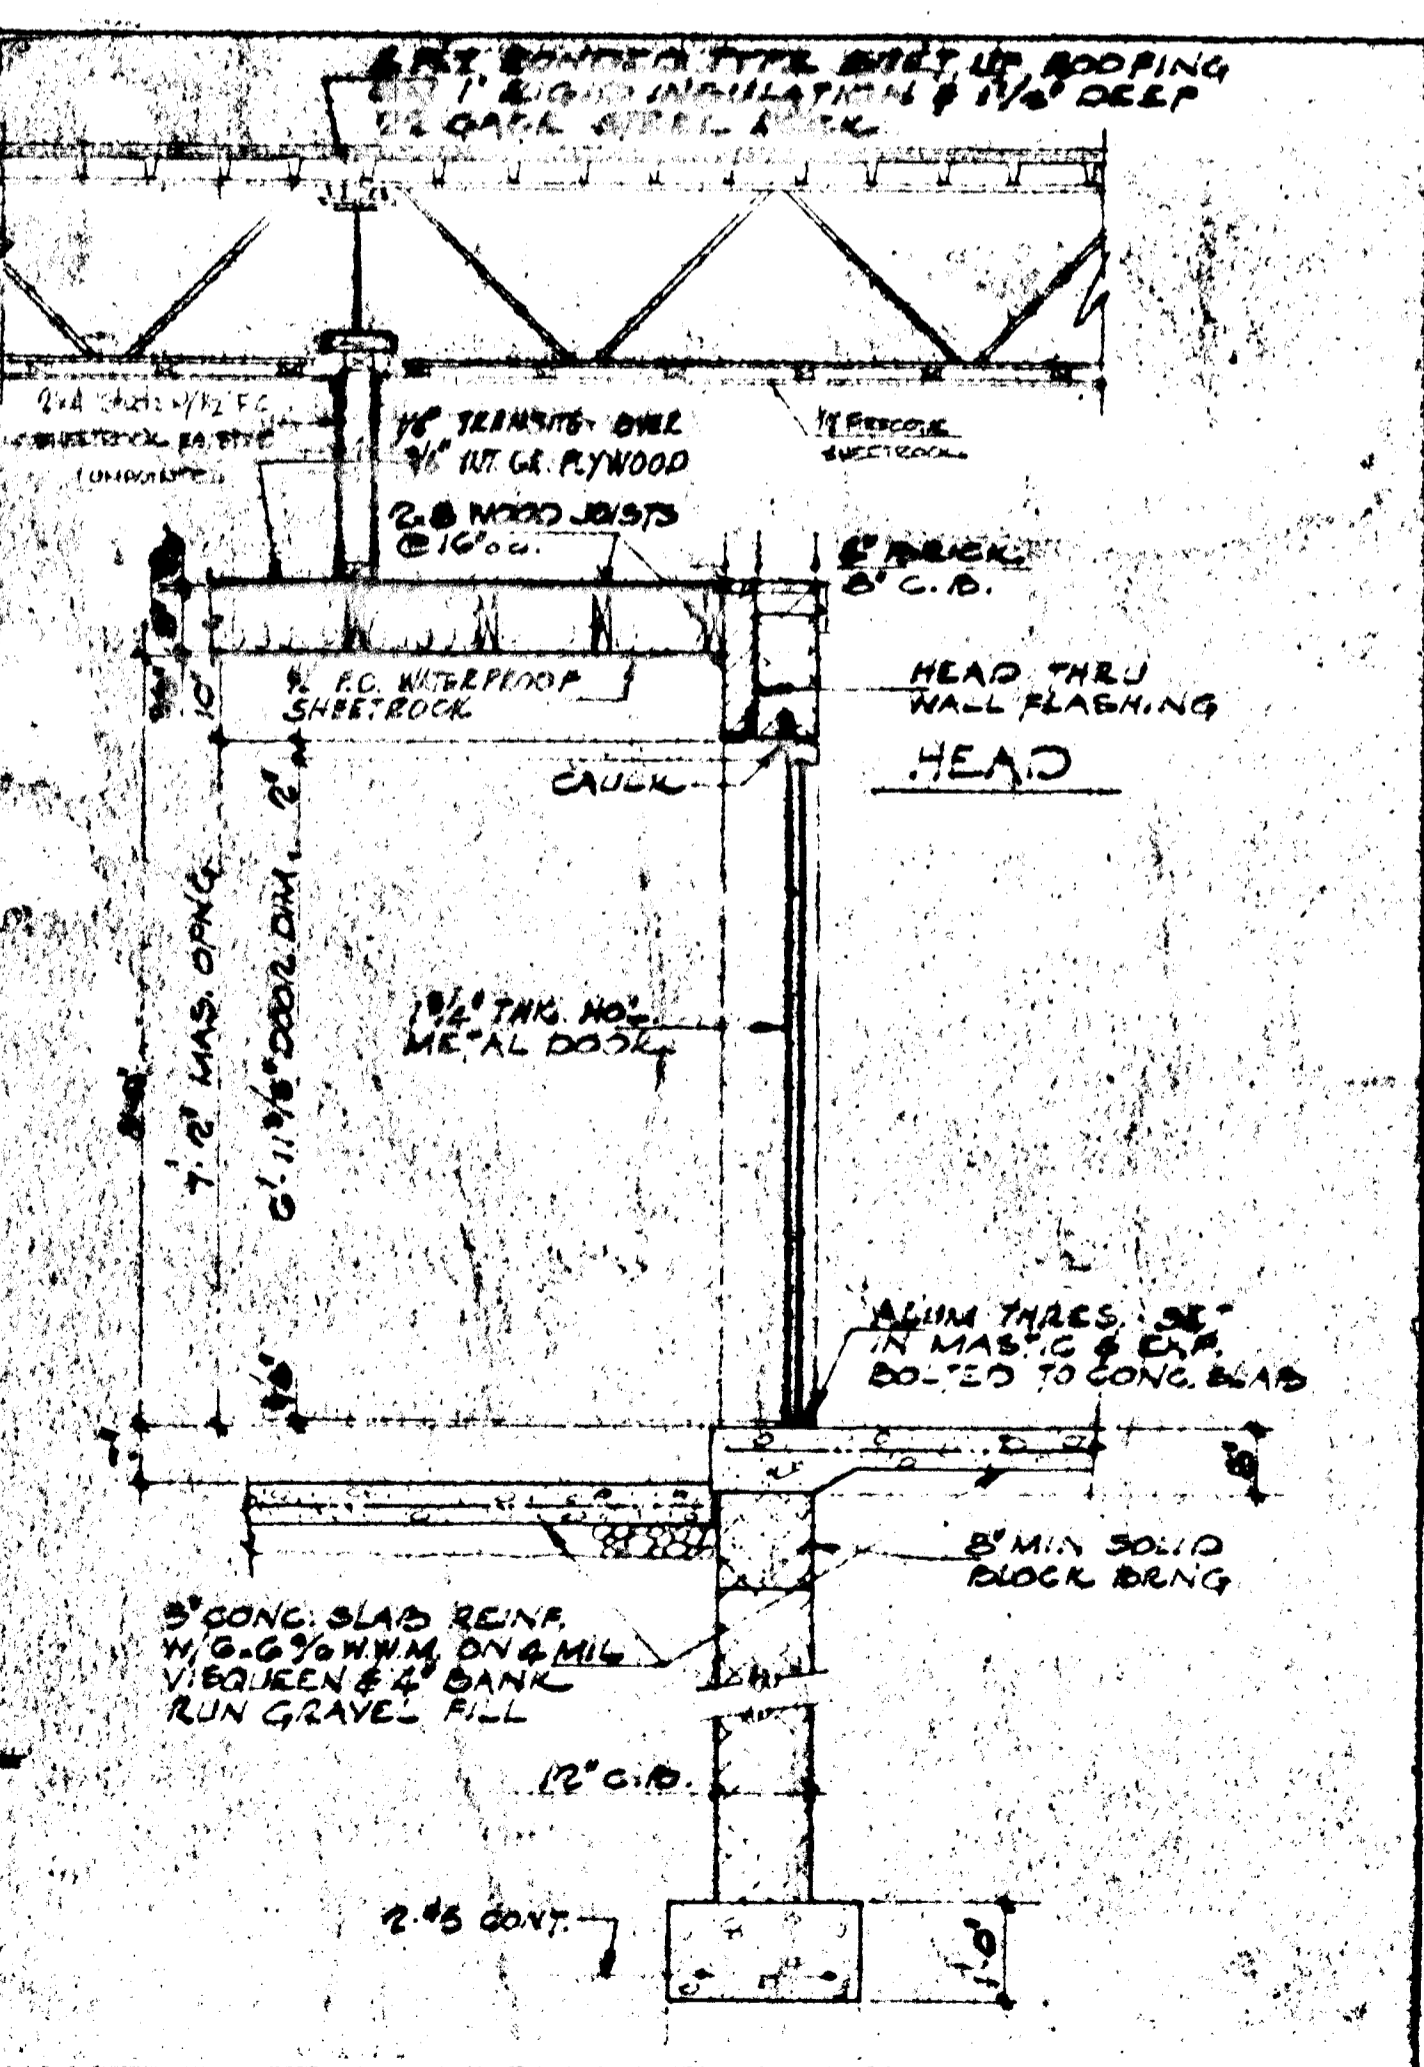 BUILT UP ROOFING
1" RIGID INSULATION & 1 1/2" DEEP
22 GAGE STEEL DECK
2x4
SHEETROCK
TRANSITE OVER
INT. GR. PLYWOOD
SHEETROCK
2x8 WOOD JOISTS
@ 16" o.c.
BRICK
8" C.B.
F.C. WATERPROOF
SHEETROCK
HEAD THRU
WALL FLASHING
HEAD
CAULK
10"
2"
7'-2" MAS. OPNG
6'-11 3/8" DOOR DIM.
8'-0"
1 3/4" THK. HOL.
METAL DOOR
ALUM THRES. SET
IN MASTIC & EXP.
BOLTED TO CONC. SLAB
8"
8" MIN SOLID
BLOCK BRNG
CONC. SLAB REINF.
W/ 6x6 W.W.M. ON 4 MIL
VISQUEEN & 4" BANK
RUN GRAVEL FILL
12" C.B.
2-#5 CONT.
1'-0"